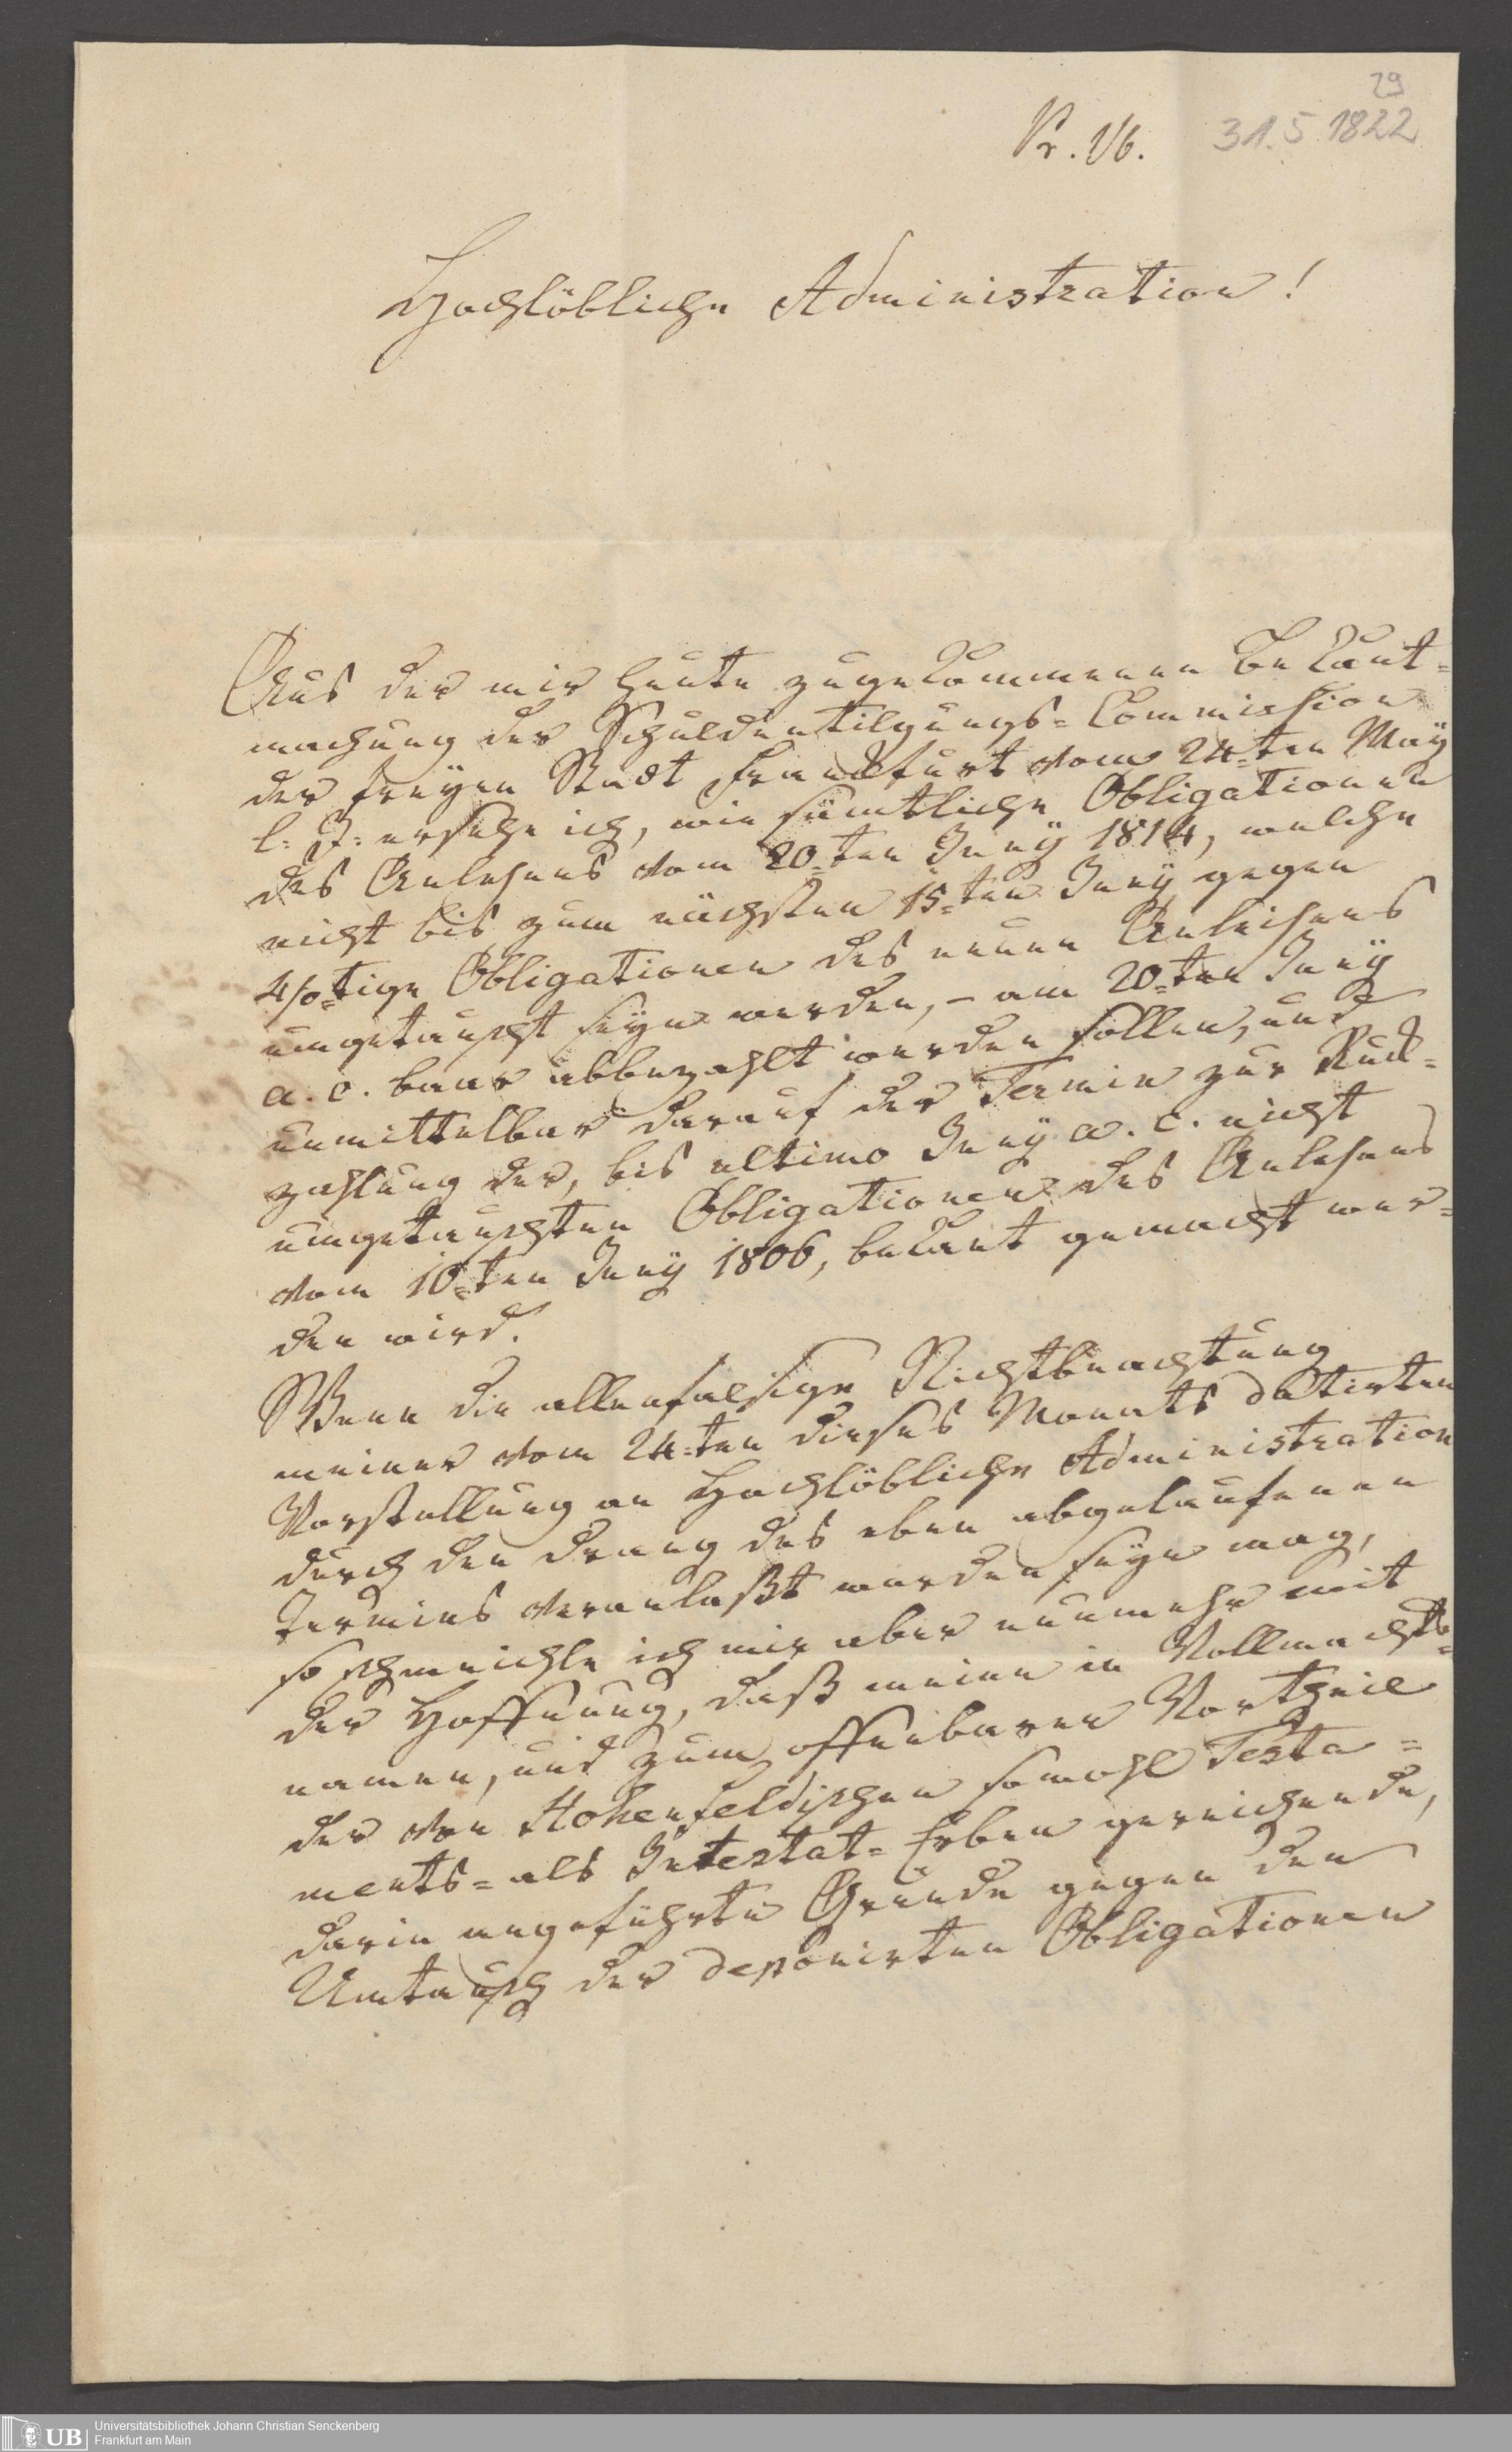 29
Pr. 16.
31.5.1822
Hochlöbliche Administration!
Aus der mir heute zugekommenen Bekant-
machung der Schuldentilgungs-Commission
der freyen Stadt Frankfurt vom 24=ten May
l: J: ersehe ich, wie sämtliche Obligationen
des Anlehens vom 20=ten Juny 1814, welche
nicht bis zum nächsten 15=ten Juny gegen
4/o=tige Obligationen des neuen Anleihens
umgetauscht seyn werden, - am 20=ten Juny
a. c. baar abbezahlt werden sollen, und
unmittelbar darauf der Termin zur Rück=
zahlung der, bis ultimo Juny a. c. nicht
umgetauschten Obligationen des Anlehens
vom 10=ten Juny 1806, bekant gemacht wer=
den wird.
Wenn die allenfalsige Nichtbeachtung
meiner vom 24=ten dieses Monats datirten
Vorstellung an Hochlöbliche Administration
durch den Drang des eben abgelaufenen
Termins veranlaßt worden seyn mag,
so schmeichle ich mir aber nunmehr mit
der Hoffnung, daß meine in Vollmachts=
namen, und zum offenbaren Vortheil
der von Hohenfeldischen sowohl Testa=
ments= als Intestat= Erben gereichende,
darin angeführte Gründe gegen den
Umtausch der deponirten Obligationen
UB
Universitätsbibliothek Johann Christian Senckenberg
Frankfurt am Main